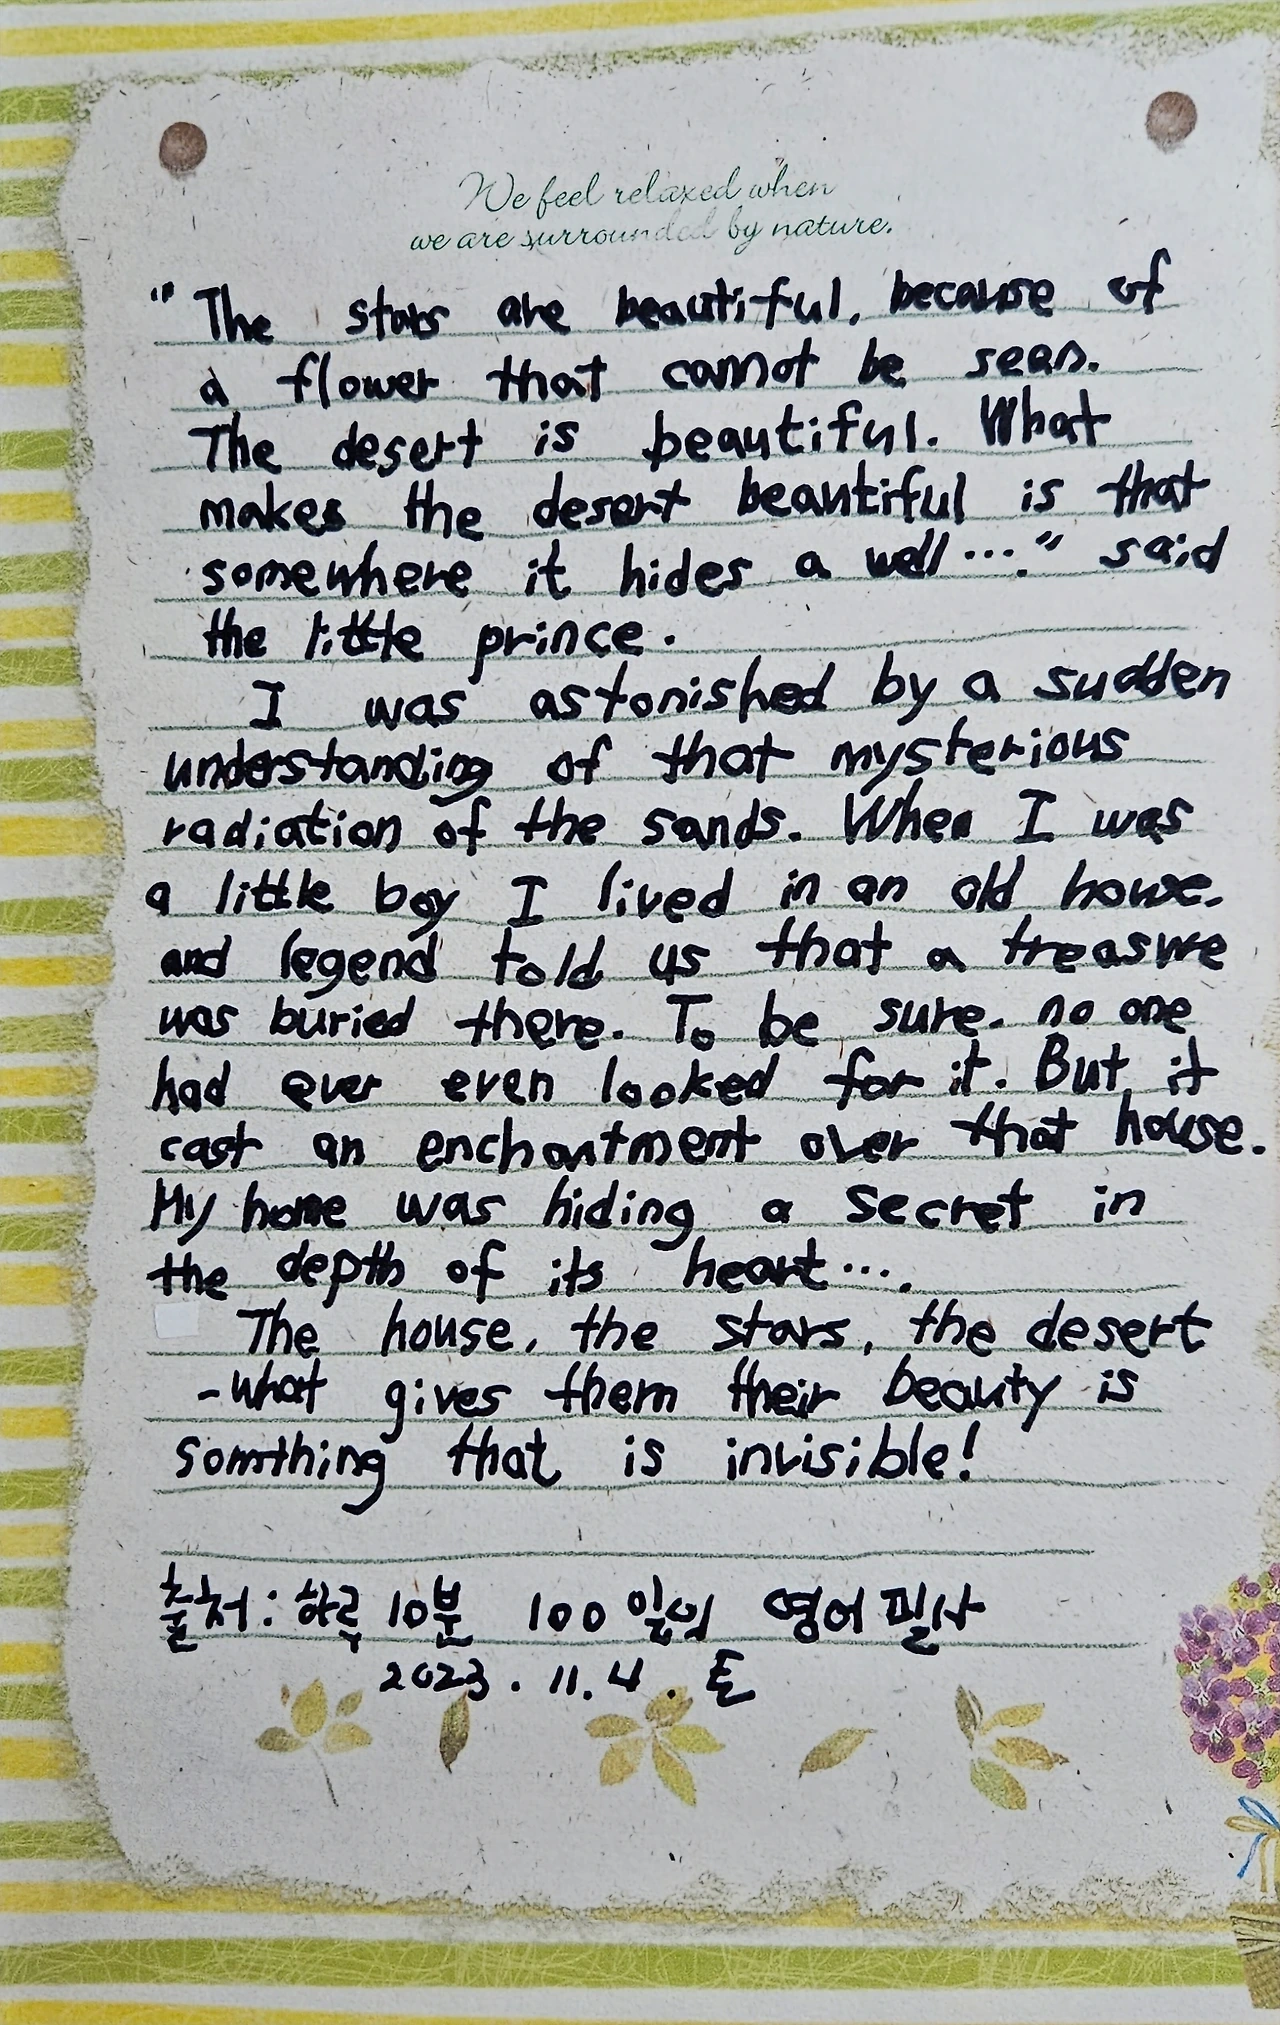 We feel relaxed when
we are surrounded by nature.
"The stars are beautiful, because of
a flower that cannot be seen.
The desert is beautiful. What
makes the desert beautiful is that
somewhere it hides a well…." said
the little prince.
I was astonished by a sudden
understanding of that mysterious
radiation of the sands. When I was
a little boy I lived in an old house.
and legend told us that a treasure
was buried there. To be sure. no one
had ever even looked for it. But it
cast an enchantment over that house.
My home was hiding a secret in
the depth of its heart….
The house, the stars, the desert
-what gives them their beauty is
somthing that is invisible!
출처: 하루 10분 100일의 영어필사
2023. 11. 4. 토